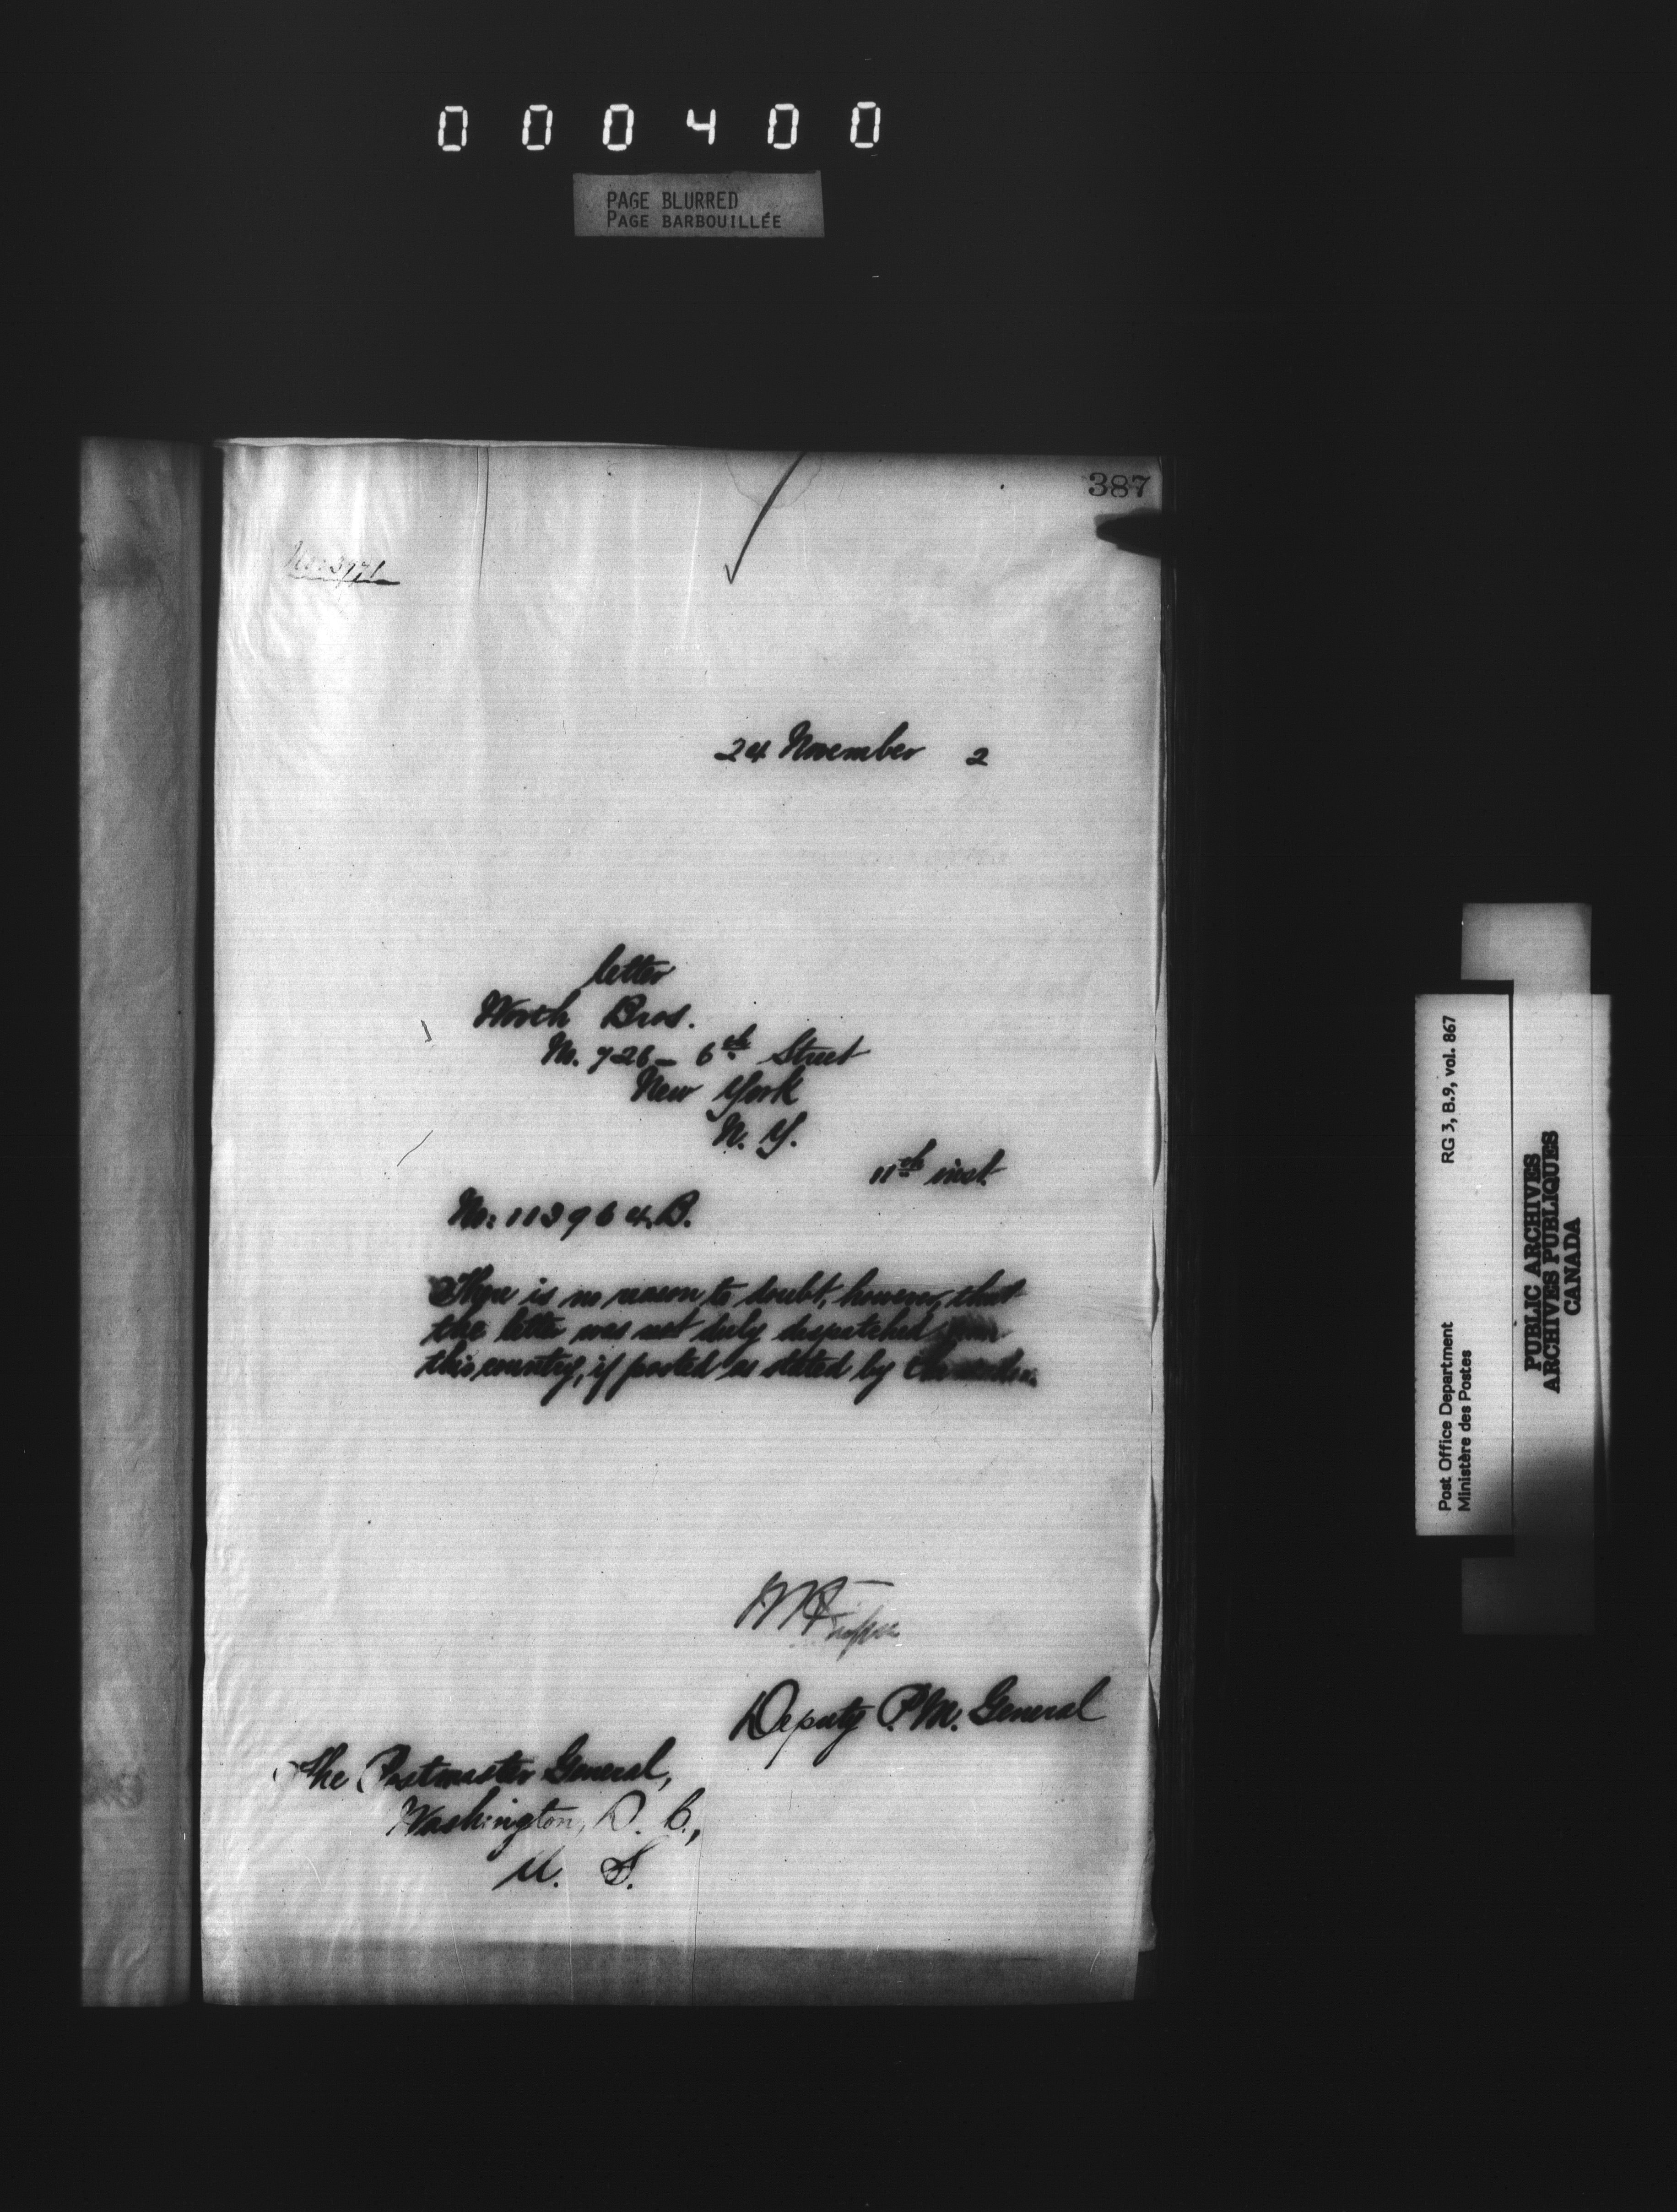 000400
PAGE BLURRED
PAGE BARBOUILLÉE
387
24 November 2
letter
Worth Bros.
No. 726 – 6th Street
New York
N. Y.
11th inst.
No: 113964.B.
There is no reason to doubt, however, that
the letter was not duly dispatched from
this country, if posted as stated by the
Deputy P.M. General
The Postmaster General,
Washington, D. C.,
U. S.
RG 3, B.9, vol. 867
Post Office Department
Ministère des Postes
PUBLIC ARCHIVES
ARCHIVES PUBLIQUES
CANADA